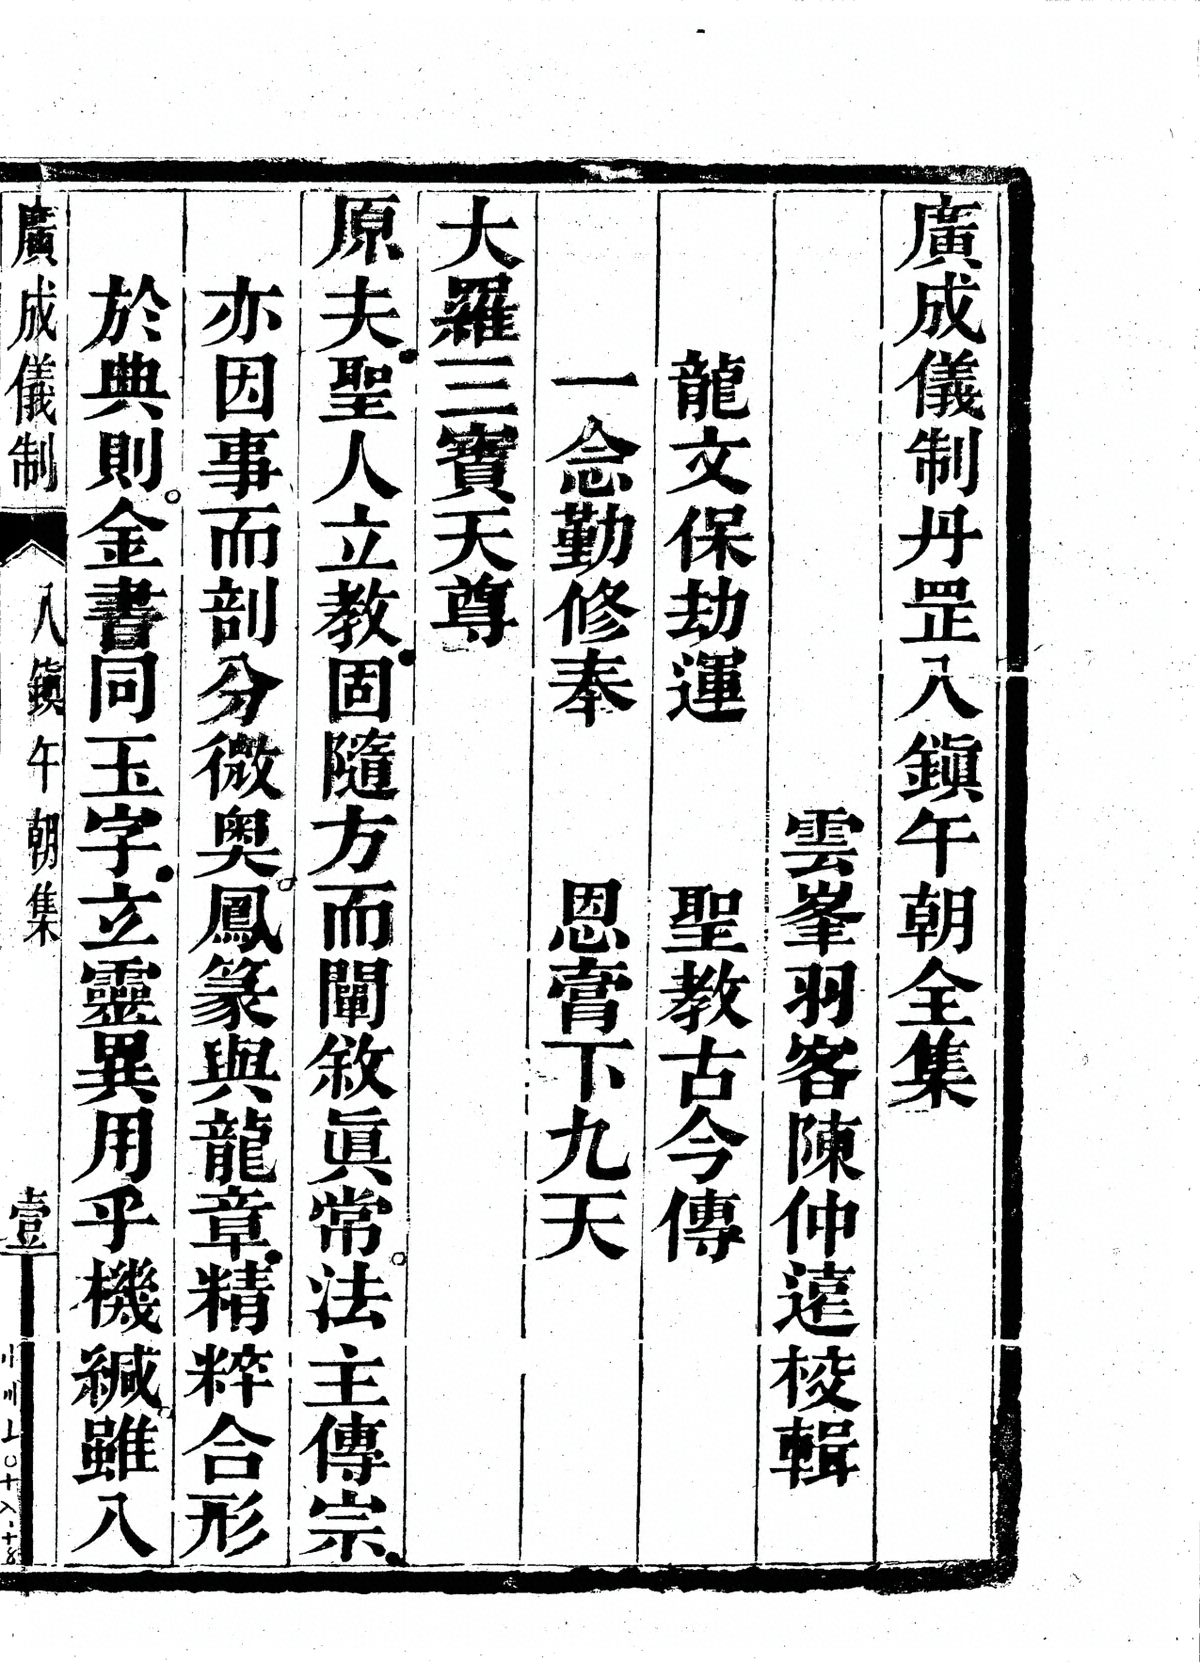 廣成儀制丹罡八鎮午朝全集
雲峯羽客陳仲遠校輯
龍文保劫運　聖教古今傳
一念勤修奉　恩膏下九天
大羅三寶天尊
原夫聖人立教固隨方而闡敘眞常法主傳宗
亦因事而剖分微奧鳳篆與龍章精粹合形
於典則金書同玉字立靈異用乎機緘雖八
廣成儀制　八鎮午朝集　壹